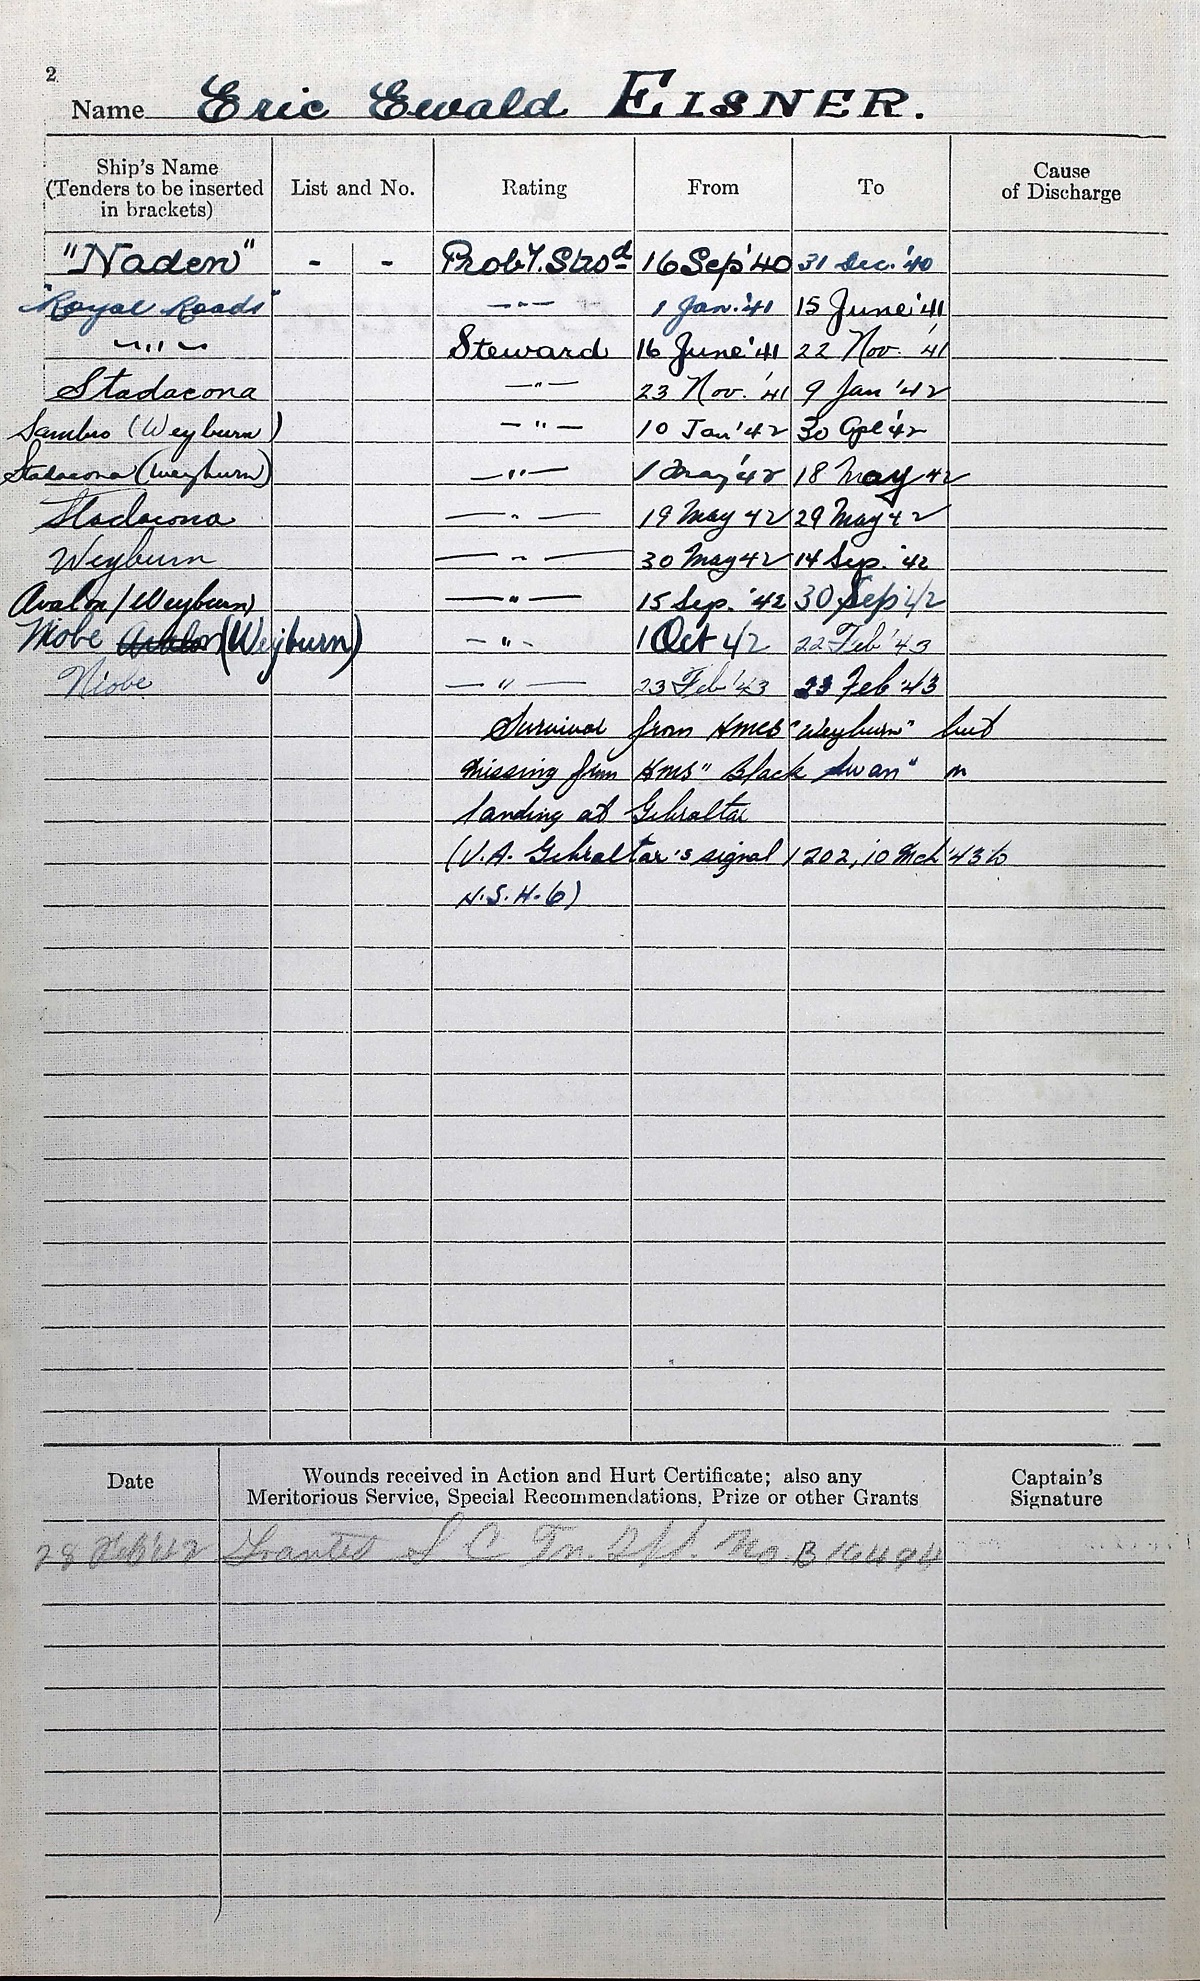 2
Name Eric Ewald EISNER.
Ship's Name (Tenders to be inserted in brackets) List and No. Rating From To Cause of Discharge
"Naden" - - Proby. Stwd 16 Sep '40 31 Dec. '40
"Royal Roads" —"— 1 Jan. '41 15 June '41
—"— Steward 16 June '41 22 Nov. '41
Stadacona —"— 23 Nov. '41 9 Jan '42
Sambro (Weyburn) —"— 10 Jan '42 30 Apl '42
Stadacona (Weyburn) —"— 1 May '42 18 May 42
Stadacona —"— 19 May 42 29 May 42
Weyburn —"— 30 May 42 14 Sep. '42
Avalon (Weyburn) —"— 15 Sep. '42 30 Sep '42
Niobe Avalon (Weyburn) -"- 1 Oct 42 22 Feb '43
Niobe —"— 23 Feb '43 23 Feb '43
Survivor from HMCS "Weyburn" but
missing from HMS "Black Swan" on
landing at Gibraltar
(V.A. Gibraltar's signal 1202, 10 Mch '43 to
N.S.H.6)
Date Wounds received in Action and Hurt Certificate; also any Meritorious Service, Special Recommendations, Prize or other Grants Captain's Signature
28 Feb '42 Granted No. B 16494